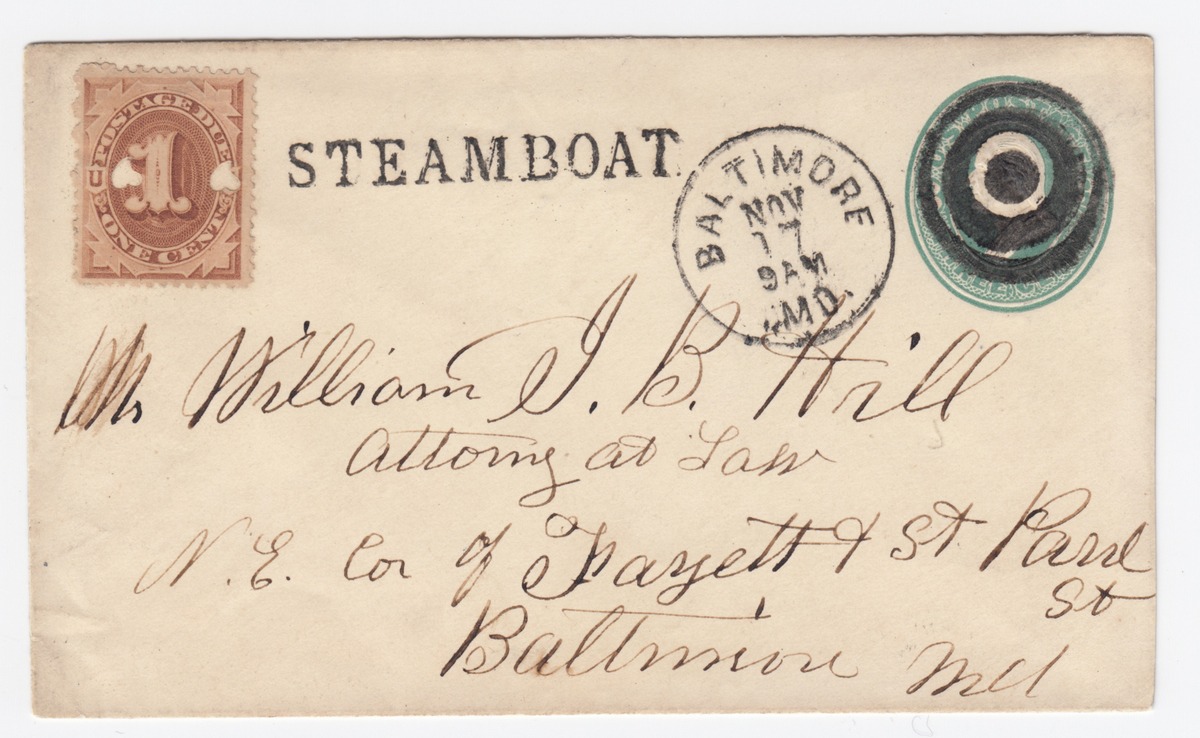 POSTAGE DUE
1
ONE CENT
STEAMBOAT
BALTIMORE
NOV
17
9AM
MD.
Mr William J. B. Hill
Attorny at Law
N. E. Cor of Fayett & St Paul
St
Baltimore Md